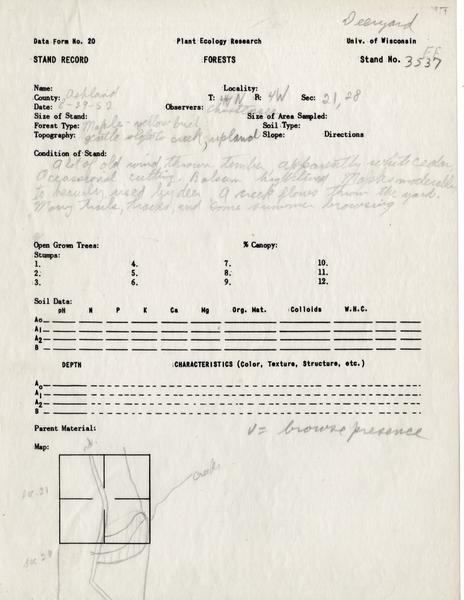 Deeryard
Data Form No. 20 Plant Ecology Research Univ. of Wisconsin
STAND RECORD FORESTS Stand No. 3537
FF
Name: Locality:
County: Ashland T: 44N R: 4W Sec: 21, 28
Date: 8-29-52 Observers: Christensen
Size of Stand: Size of Area Sampled:
Forest Type: Maple-yellow birch Soil Type:
Topography: gentle slope to creek, upland Slope: Directions
Condition of Stand: A lot of old wind thrown timber, apparently white cedar.
Occasional cutting. Balsam highlined. Maple moderately
to heavily used by deer. A creek flows thru the yard.
Many trails, tracks, and some summer browsing
Open Grown Trees: % Canopy:
Stumps:
1. 4. 7. 10.
2. 5. 8. 11.
3. 6. 9. 12.
Soil Data:
pH N P K Ca Mg Org. Mat. Colloids W.H.C.
Ao
A1
A2
B
DEPTH CHARACTERISTICS (Color, Texture, Structure, etc.)
Ao
A1
A2
B
Parent Material: v = browse presence
Map:
N
creek
Sec. 21
Sec 28